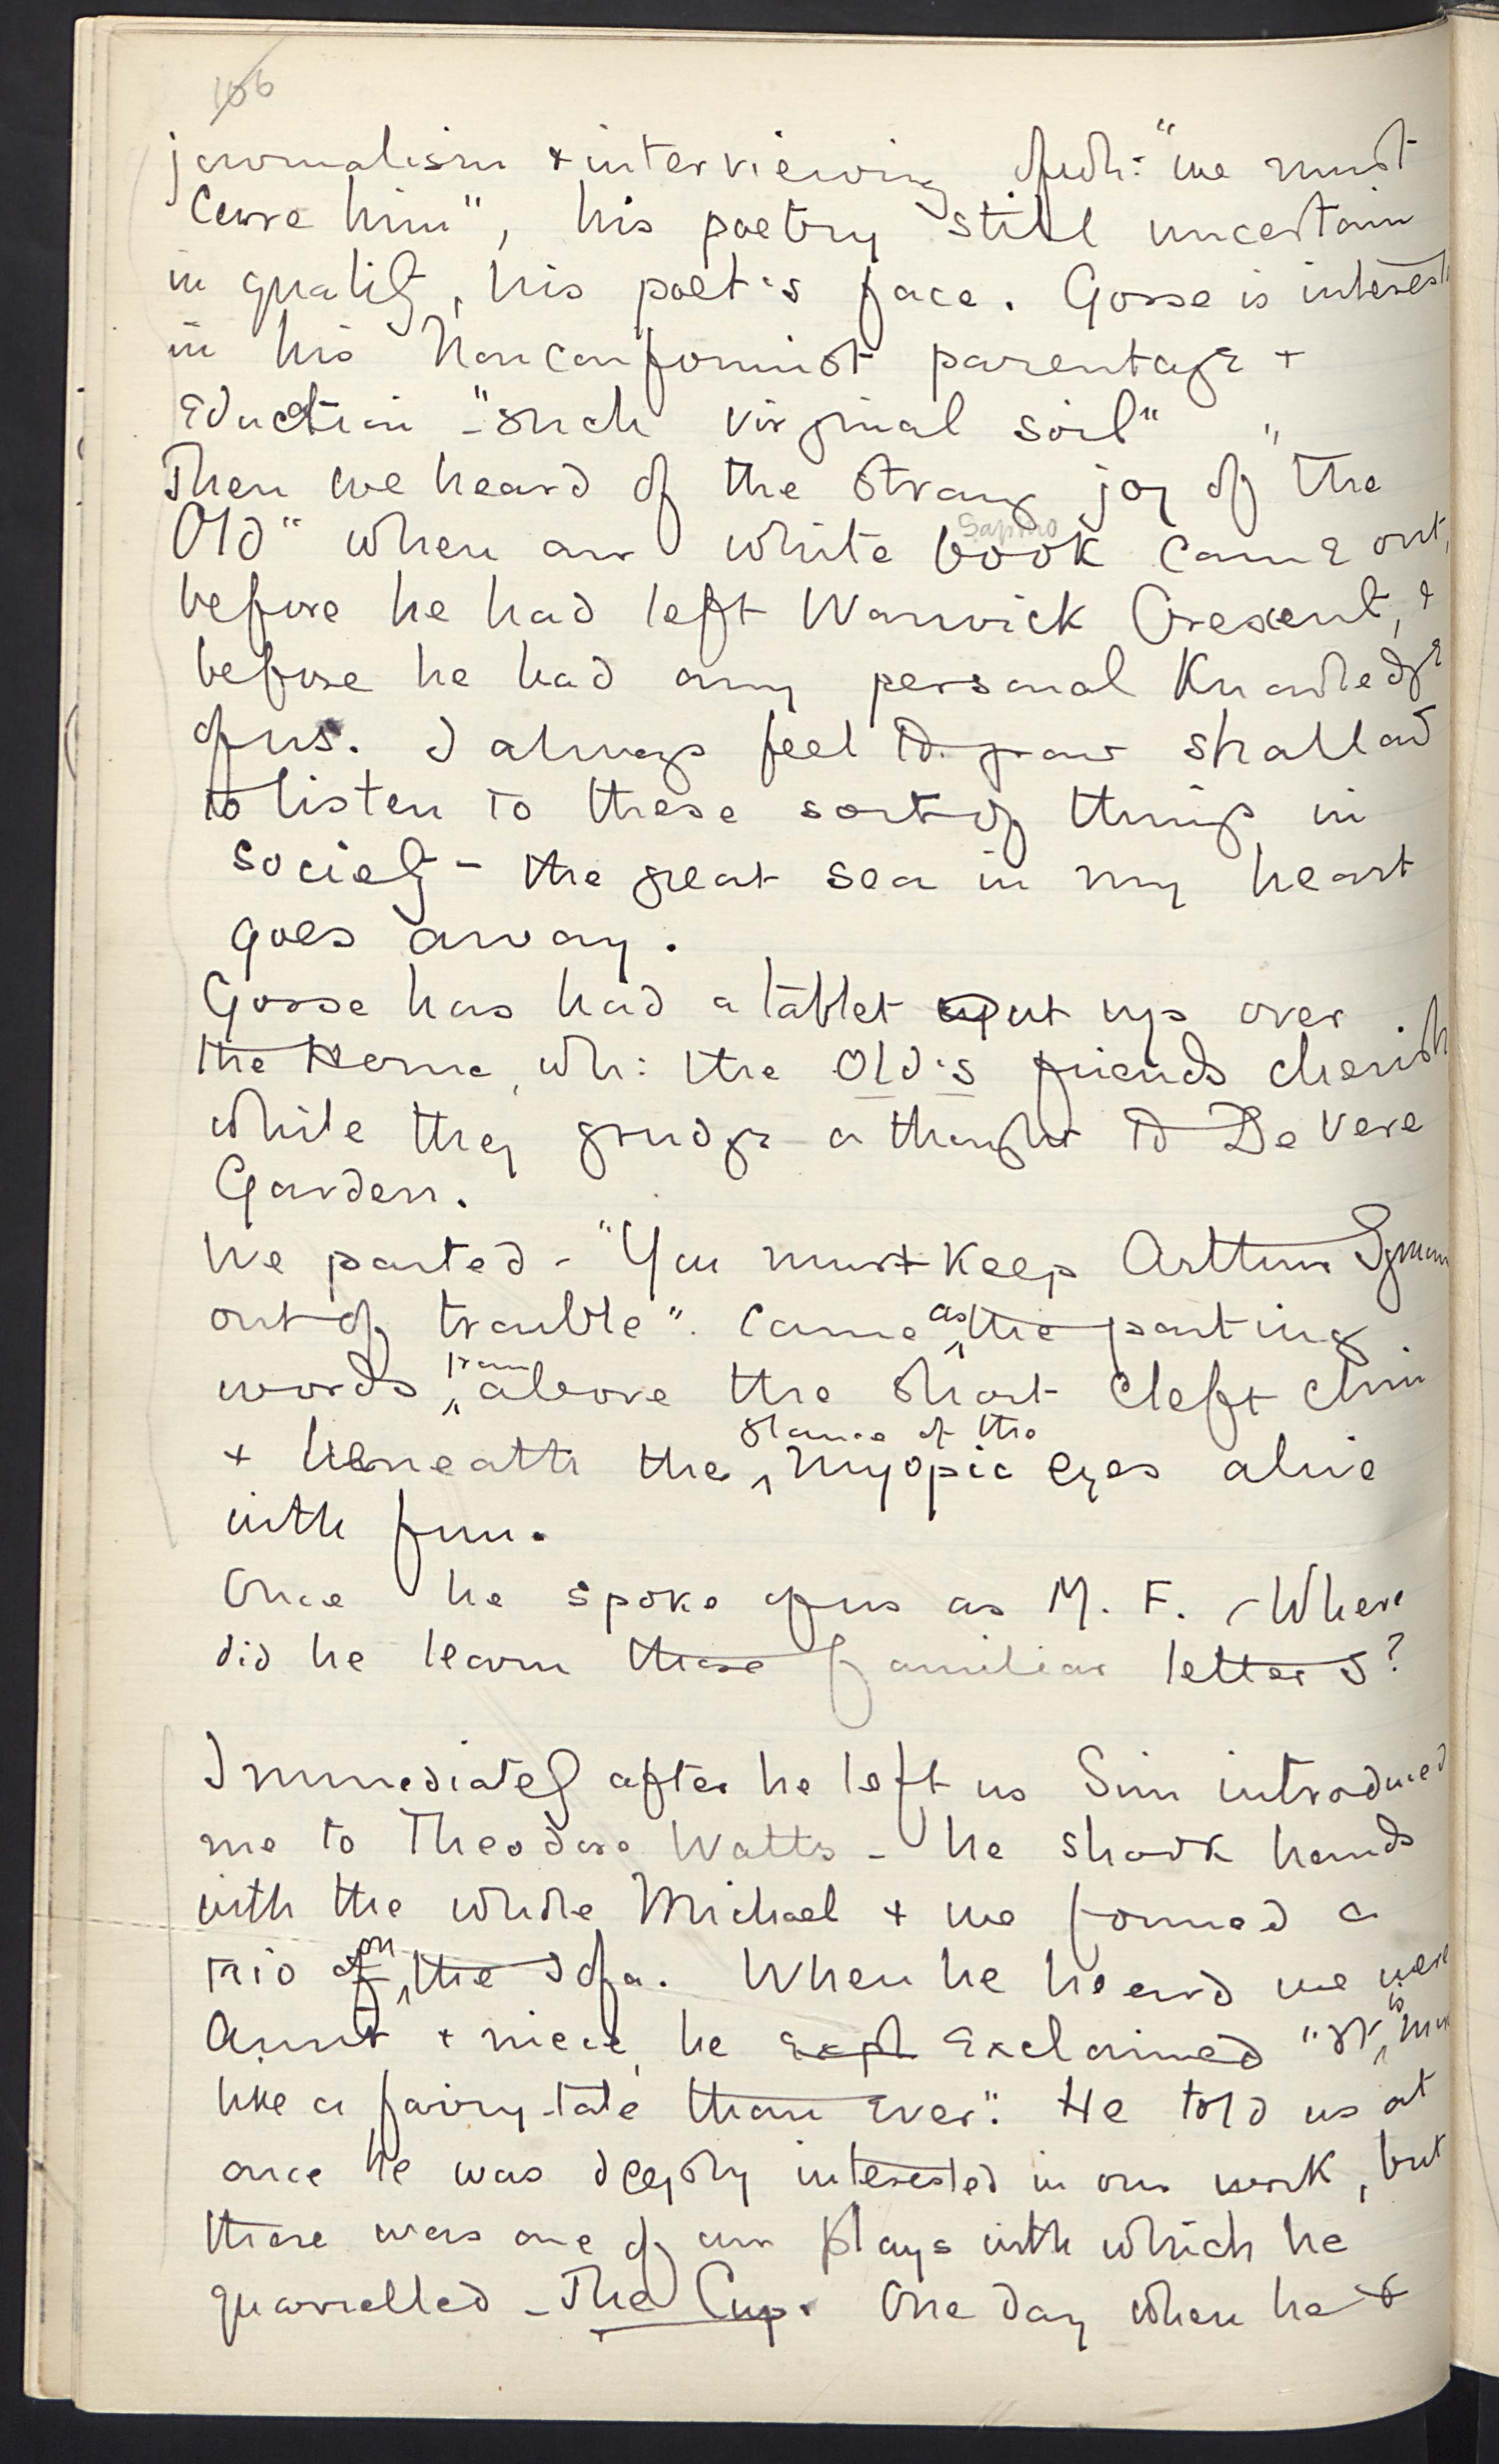 106
journalism & interviewing of wh: "we must
cure him", his poetry still uncertain
in quality, his poet's face. Gosse is interest
in his Nonconformist parentage +
education - "such virginal soil"
Then we heard of the strong joy of "the
Old" when our white book came out,
Sappho
before he had left Warwick Crescent, &
before he had any personal knowledge
of us. I always feel to grow shallow
to listen to these sort of things in
society - the great sea in my heart
goes away.
Gosse has had a tablet put up over
the Home, wh: the Old's friends cherish
while they grudge a thought to De Vere
Garden.
We parted - "You must keep Arthur Symons
out of trouble". Came as the parting
words, from above the short cleft chin
+ beneath the glance of the myopic eyes alive
with fun.
Once he spoke of us as M. F. - Where
did he learn those familiar letters?
Immediately after he left us Sim introduced
me to Theodore Watts - he shook hands
with the whole Michael + we formed a
trio of on the sofa. When he heard we were
Aunt + niece, he expl exclaimed "It is more
like a fairy-tale than ever". He told us at
once he was deeply interested in our work, but
there was one of our plays with which he
quarrelled - The Cup. One day when he &